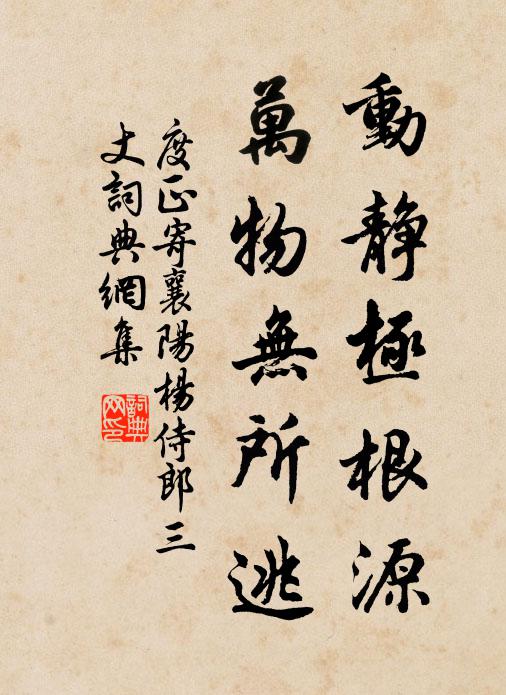 動靜極根源
萬物無所逃
度正寄襄陽楊侍郎三
丈詞典網集
詞典
网印